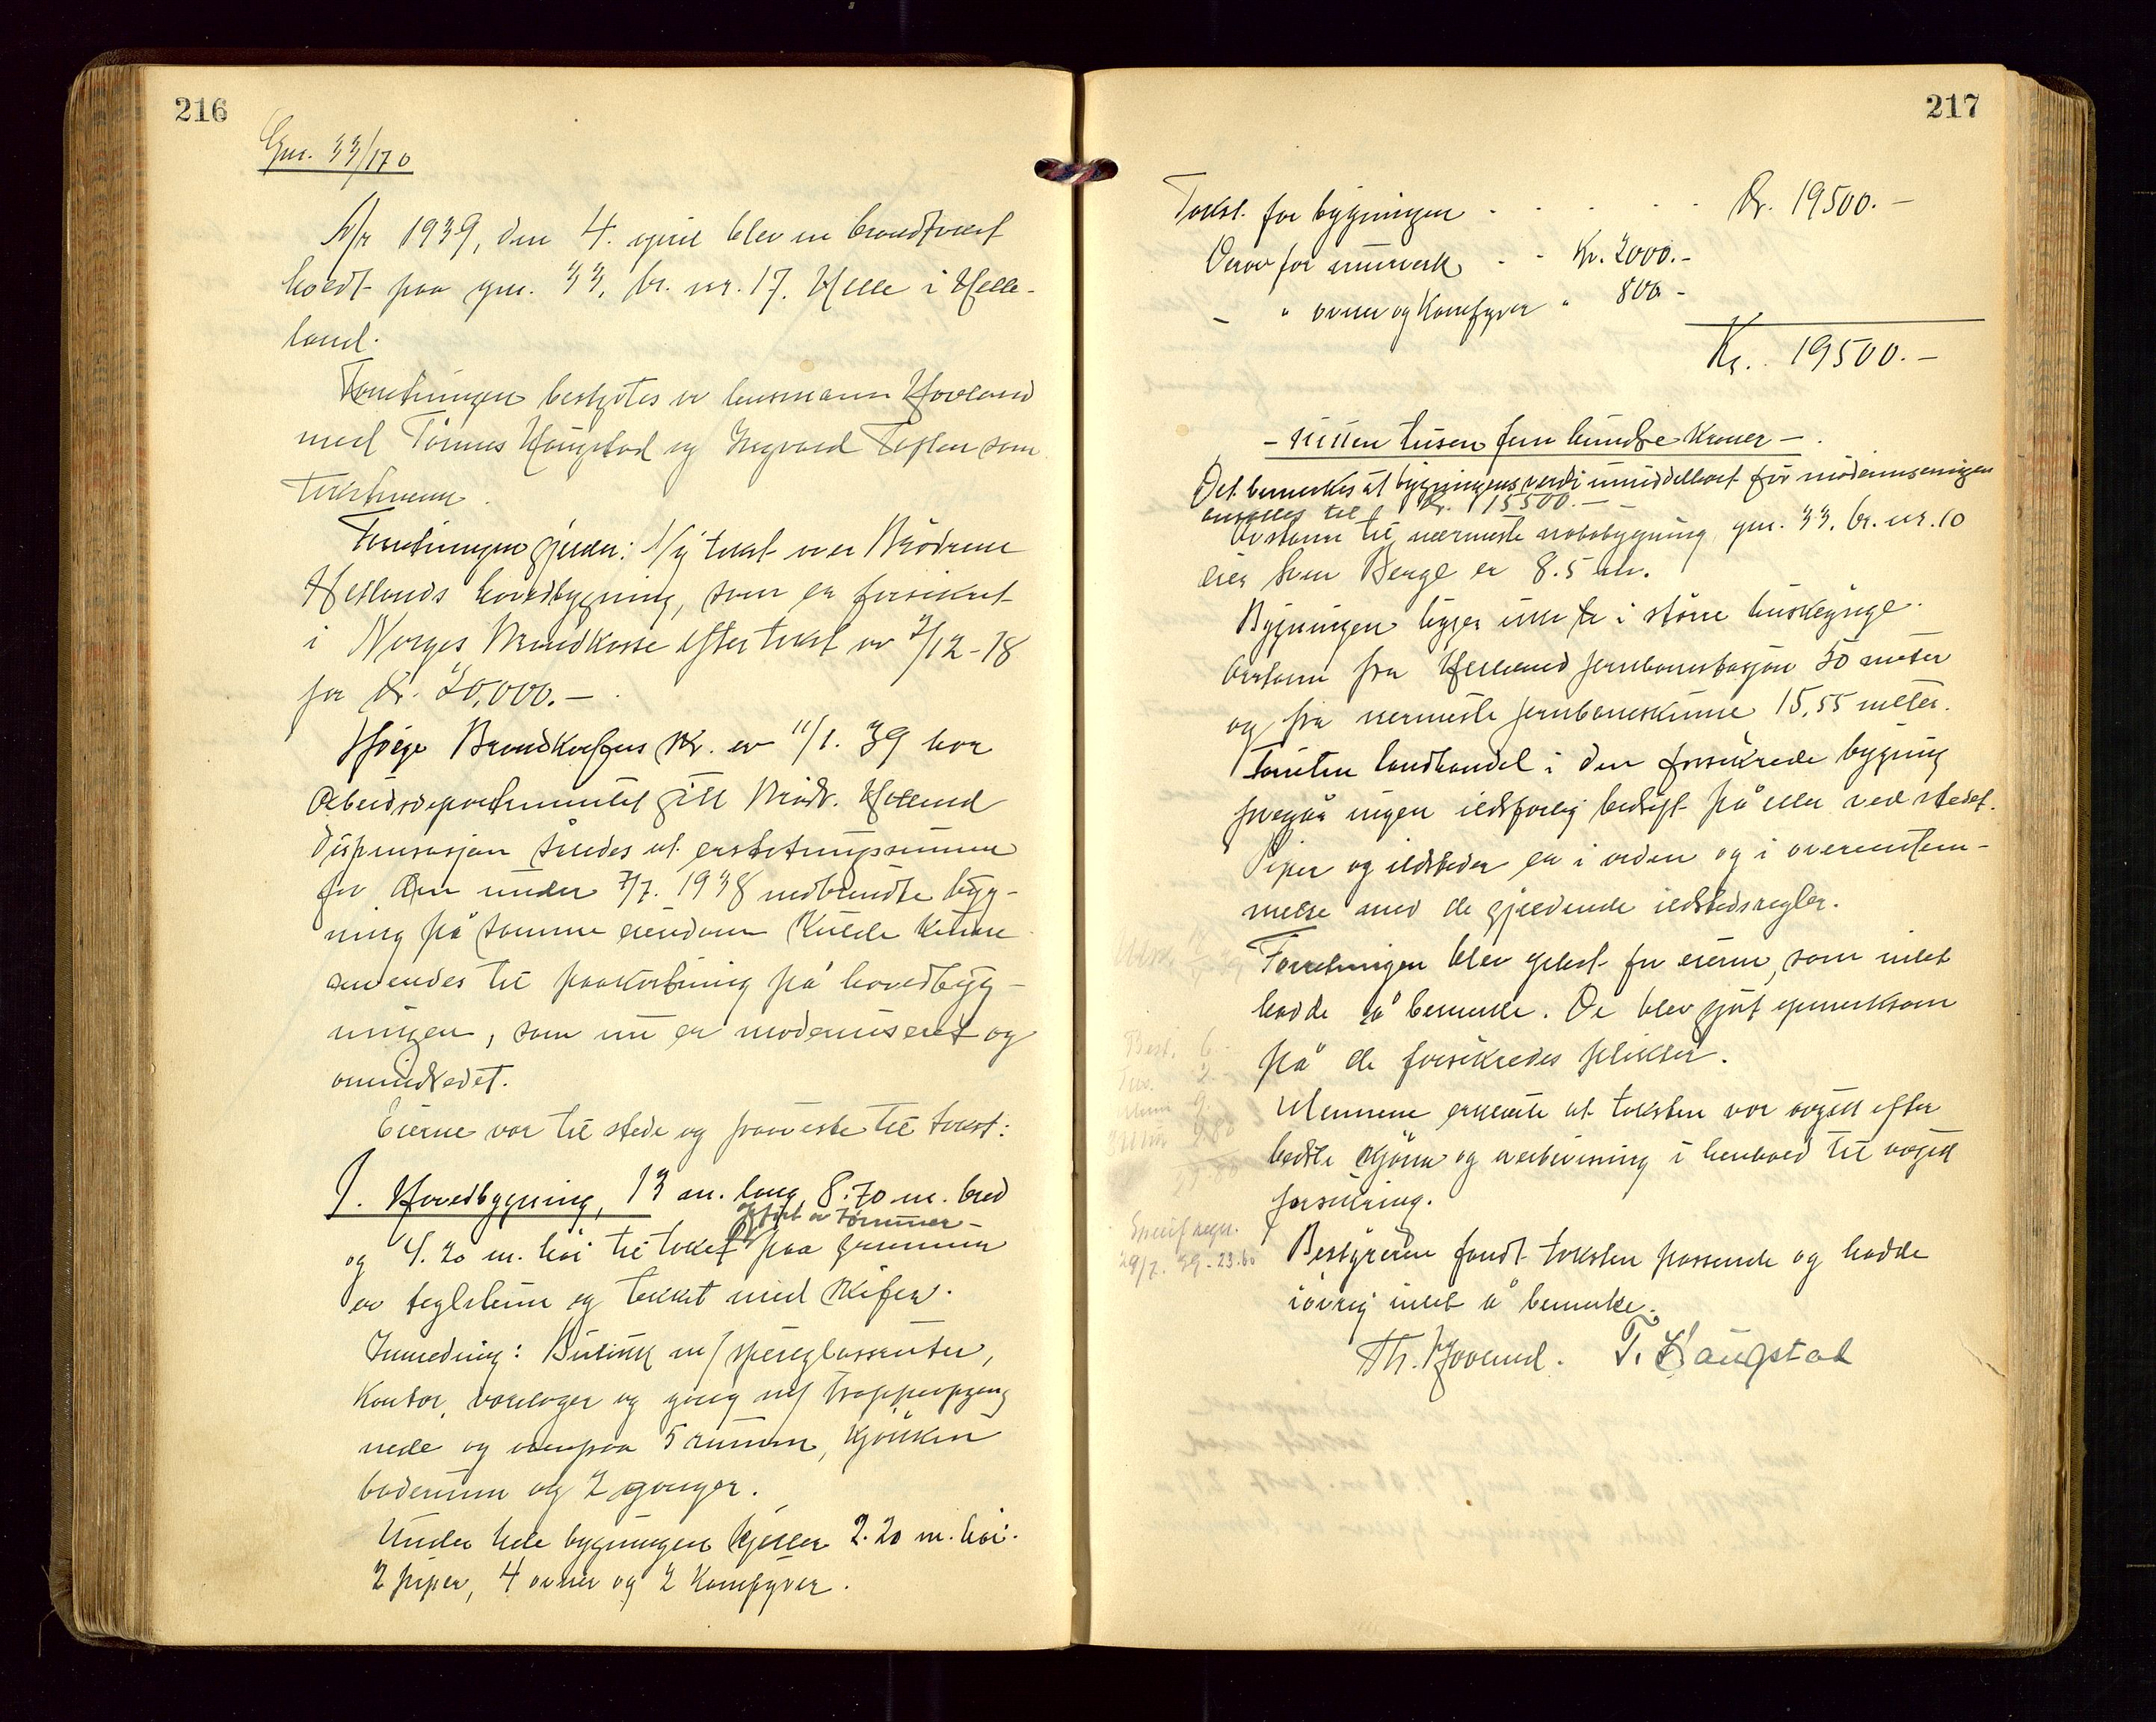 216
Gnr. 33/170
År 1939, den 4. april blev en brandtakst
holdt paa gnr. 33, br. nr. 17. Helle i Helle-
land.
Forretningen bestyrtes av lensmann Hovland
med Tönnes Haugstad og Ingvald som
takstmenn.
Forretningen gjelder: Ny takst over Brödrene
Hetlands hovedbygning, som er forsikret
i Norges Brandkasse efter takst av 2/12-18
for Kr. 20,000.-
Ifölge Brandkassens skr. av 11/1. 39 har
Arbeidsdepartementet gitt Brödr. Hetland
dispensasjon således at erstatningssummen
for den under 7/7. 1938 nedbrendte byg-
ning på samme eiendom
anvendes til paakostning på hovedbyg-
ningen, som nu er modernisert og
ominnredet.
Eierne var til stede og fremviste til takst:
1. Hovedbygning, 13 m. lang, 8.70 m. bred
opfört av tömmer-
og 4.20 m. höi til taket paa grunnmur
av teglstein og tekket med skifer.
Innredning: Butikk m/ speilglassruter,
kontor, varelager og gang m/ trappeopgang
nede og ovenpaa 5 rummm, kjökken
baderum og 2 ganger.
Under hele bygningen kjeller 2.20 m. höi.
2 piper, 4 ovner og 2 komfyrer.
217
Takst for bygningen . . . . . Kr. 19500.-
Derav for murverk . . Kr. 2000.-
- " ovner og komfyrer " 800 -
Kr. 19500.-
- nitten tusen fem hundre kroner - .
Det bemerkes at bygningens verdi umiddelbart för moderniseringen
ansattes til Kr. 15500.-
Avstann til nærmeste nabobygning gnr. 33, br. nr. 10
eier Berge er 8.5 m.
Bygningen ligger ikke i större husklynge.
Avstann fra Helleland jernbanestasjon 50 meter
og fra nærmeste jernbaneskinne 15,55 meter.
Foruten landhandel i den forsikrede bygning
foregår ingen ildsfarlig bedrift på eller ved stedet.
Piper og ildsteder er i orden og i overenstem-
melse med de gjeldende ildstedsregler.
Forretningen blev oplest for eierne, som intet
hadde å bemerke. De blev gjort opmerksom
på de forsikredes plikter.
Mennene erklærte at taksten var avgitt efter
bedste skjönn og overbevisning i henhold til avgitt
forsikring.
Bestyreren fandt taksten passende og hadde
iövrig intet å bemerke.
Th. Hovland. T. Haugstad
Best. 6.-
29/7. 39 - 23.60